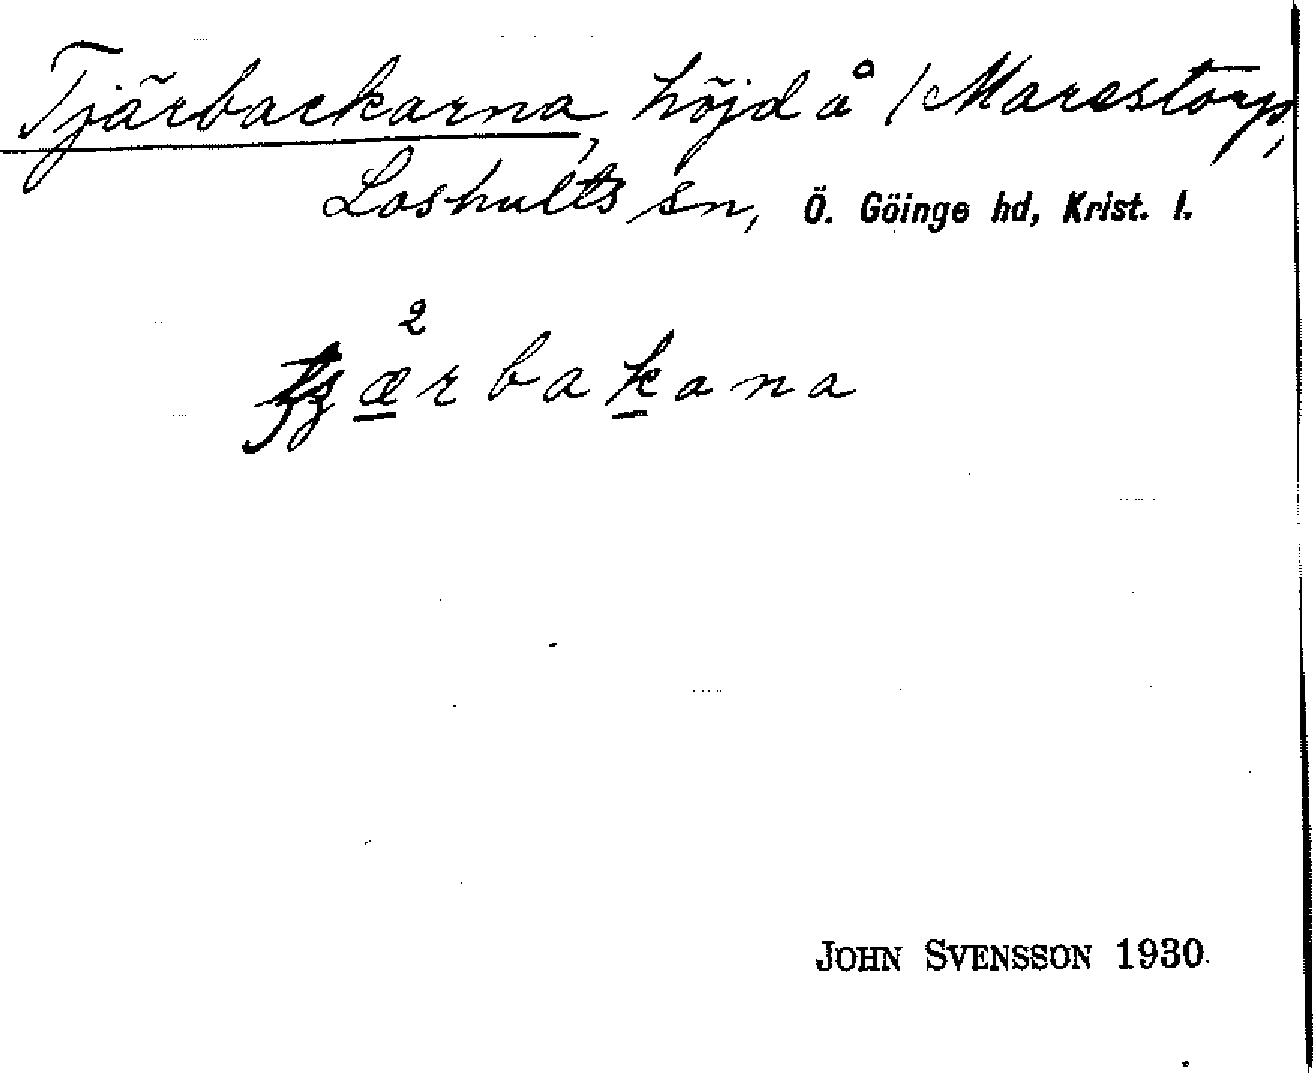 Tjärbackarna, höjd å /Marestorp,
Loshults sn, Ö. Göinge hd, Krist. l.
2
ærbakana
JOHN SVENSSON 1930